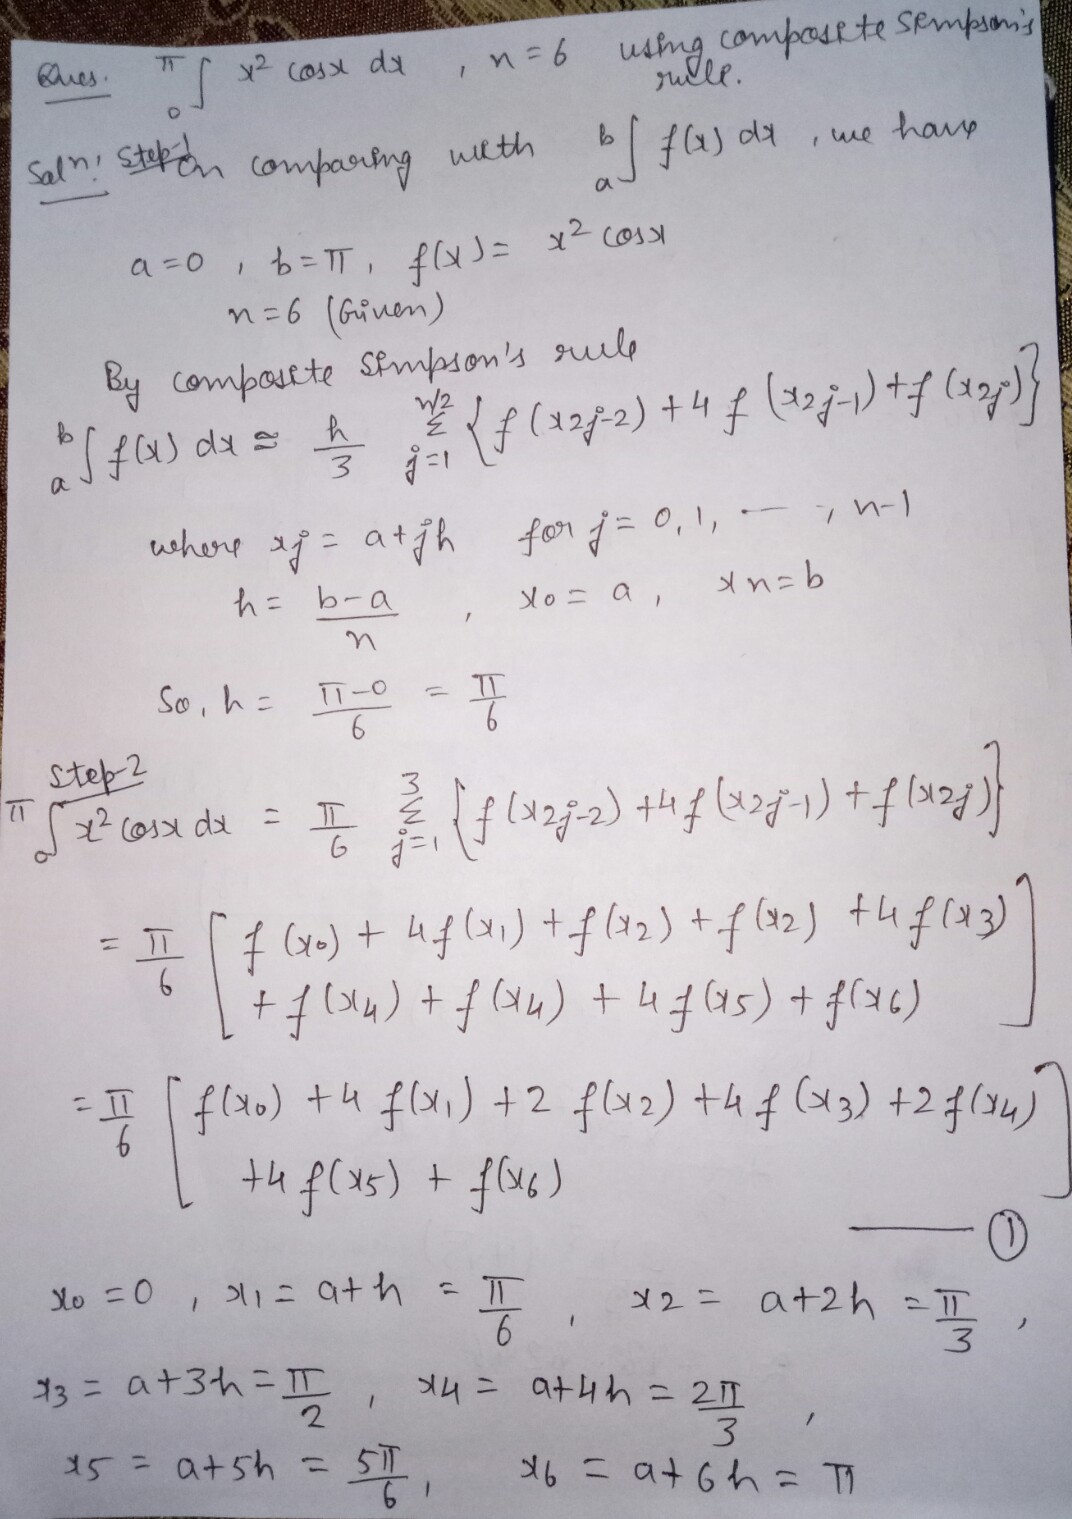 Ques. π∫0 x² cosx dx , n=6 using composite Simpson's
rule.
Solⁿ: Step-1 On comparing with b∫a f(x) dx , we have
a=0 , b=π, f(x)= x² cosx
n=6 (Given)
By composite Simpson's rule
b∫a f(x) dx ≅ h/3 n/2Σj=1 {f(x2j-2) +4f(x2j-1)+f(x2j)}
where xj = a+jh for j= 0,1, - - , n-1
h= b-a/n , x0= a, xn=b
So, h= π-0/6 = π/6
Step-2
π∫0 x² cosx dx = π/6 3Σj=1 {f(x2j-2) +4f(x2j-1)+f(x2j)}
= π/6 [f(x0) + 4f(x1) +f(x2) + f(x2) +4f(x3)
+f(x4) + f(x4) + 4f(x5) + f(x6)]
= π/6 [f(x0) +4 f(x1) +2 f(x2) +4f(x3) +2f(x4)
+4 f(x5) + f(x6)]
—— ①
x0 =0 , x1= a+h = π/6 , x2 = a+2h = π/3 ,
x3 = a+3h= π/2 , x4 = a+4h = 2π/3 ,
x5 = a+5h = 5π/6 , x6 = a+6h = π